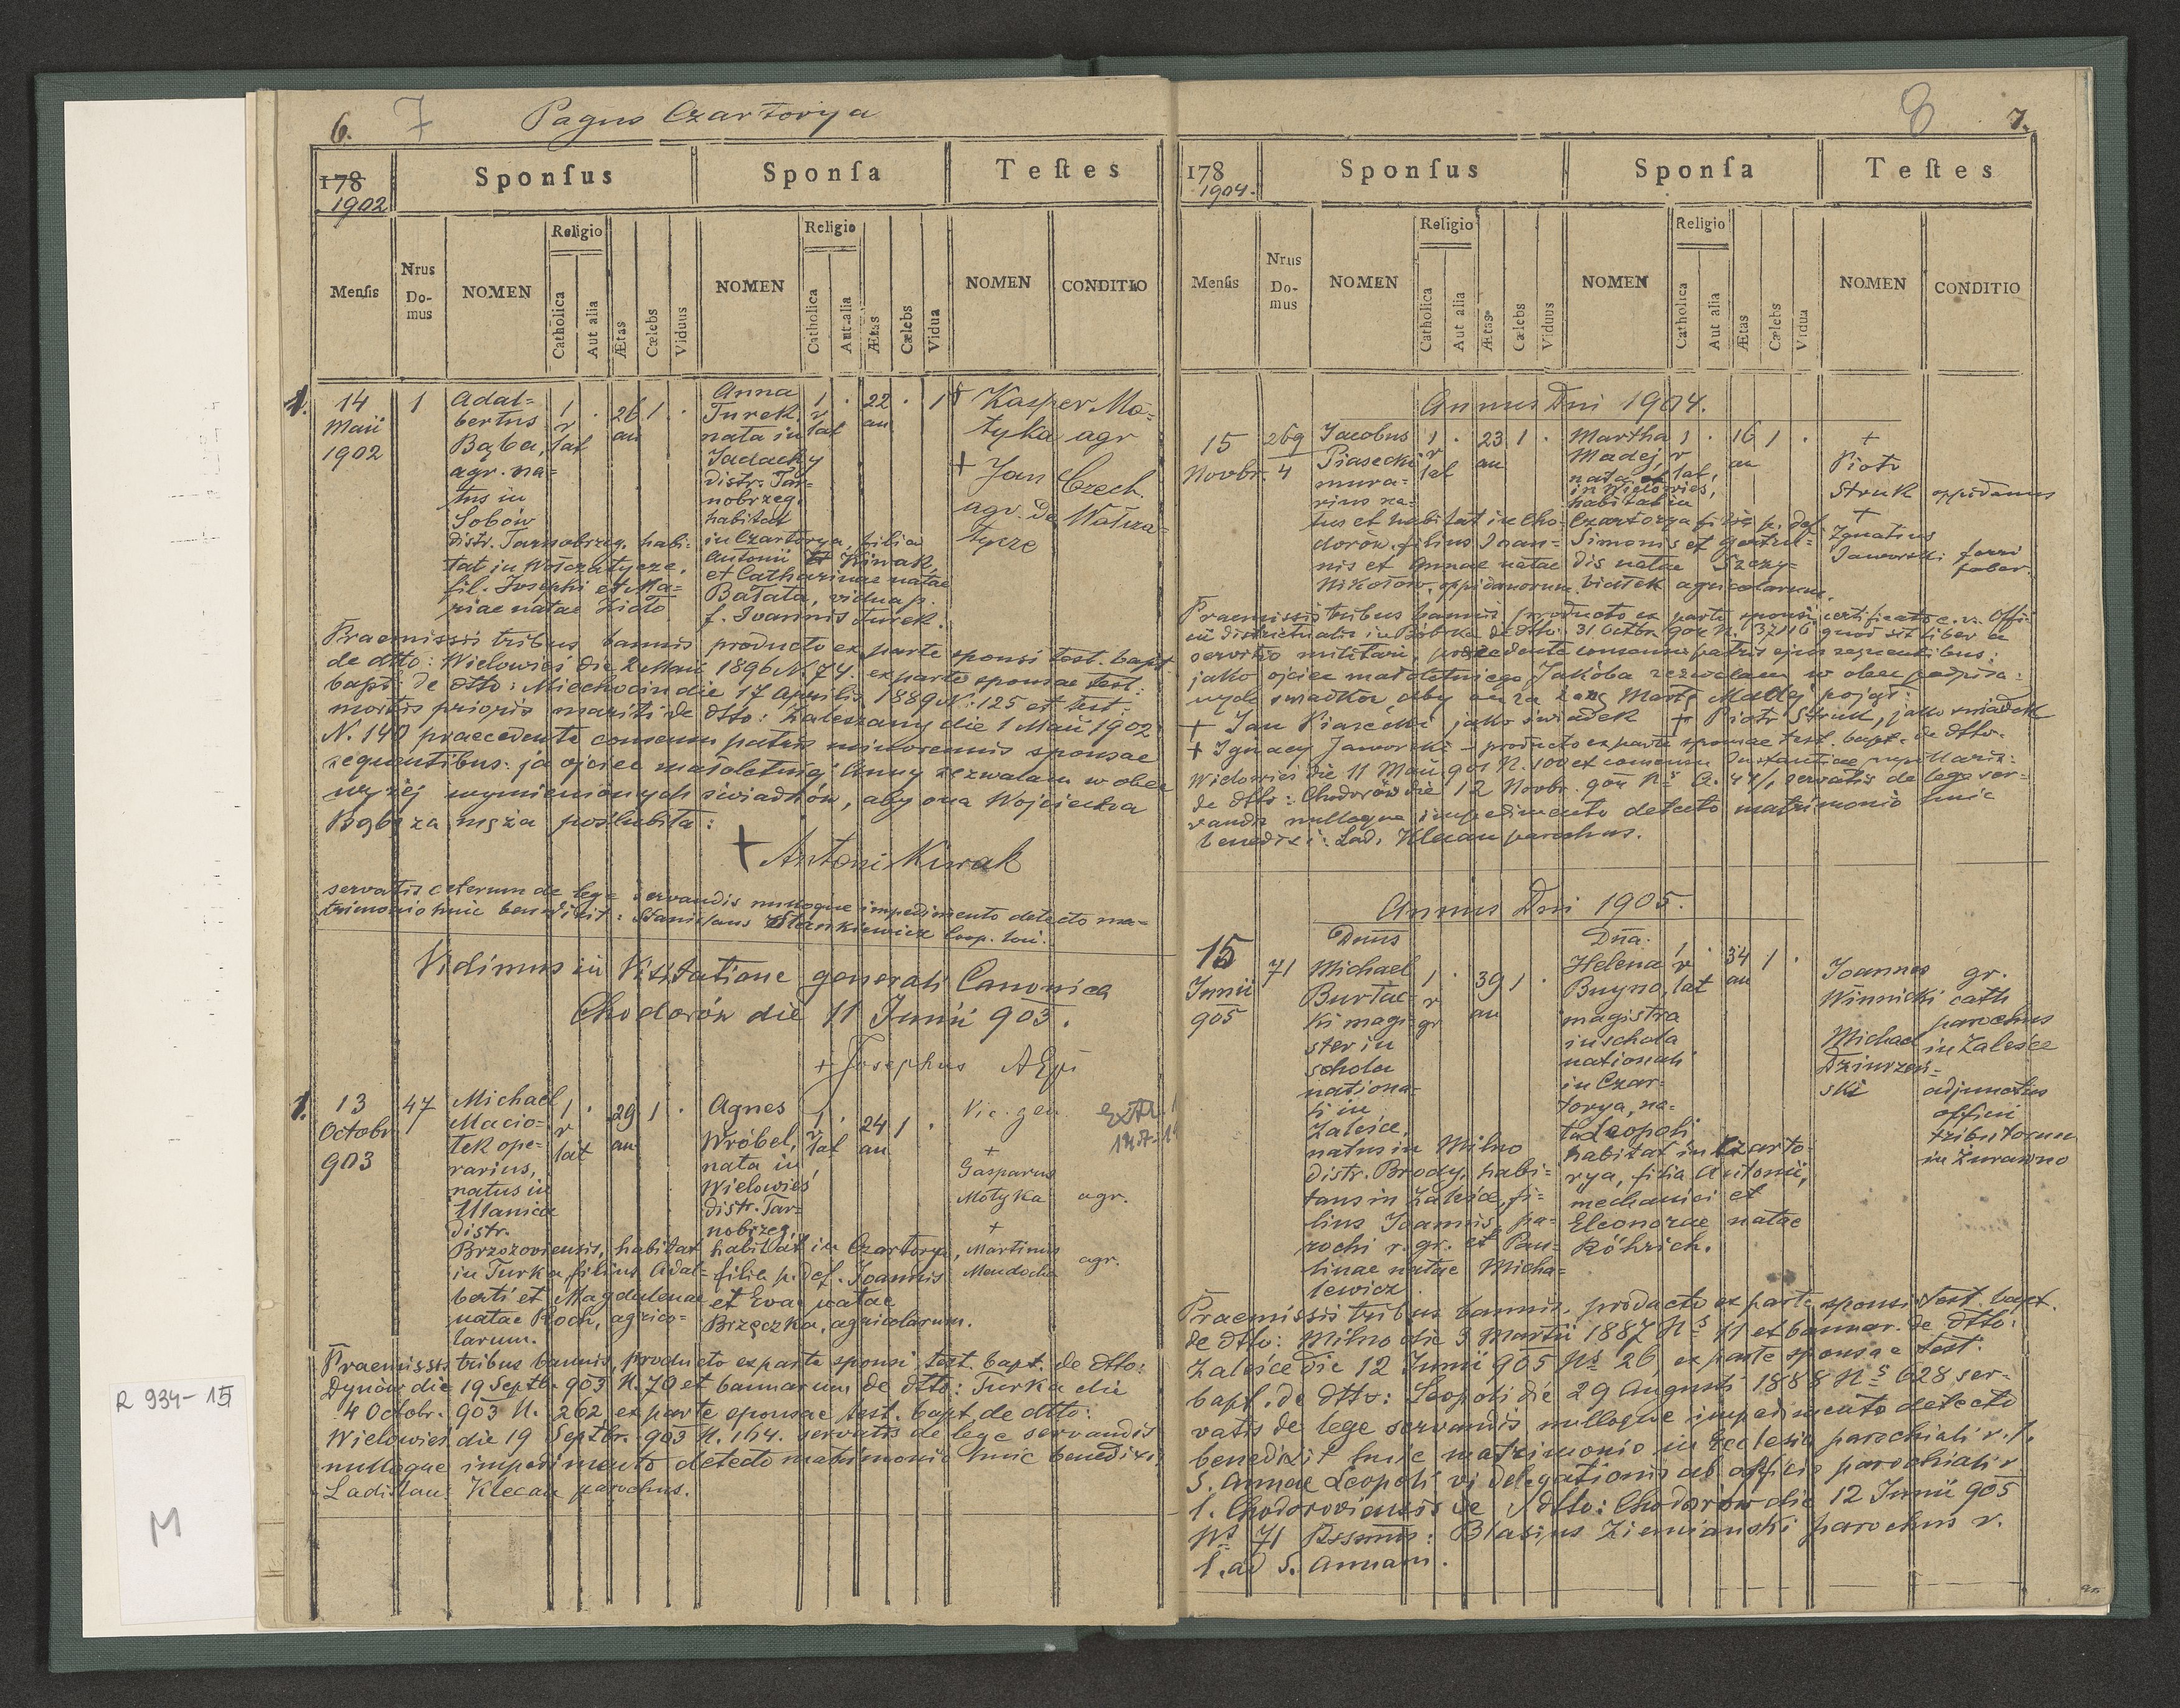 6.
7
Pagus Czartorya
178
1902
Sponſus
Sponſa
Teſtes
Menſis
Nrus Do-mus
NOMEN
Religio
Catholica
Aut alia
Ætas
Cælebs
Viduus
NOMEN
Religio
Catholica
Aut alia
Ætas
Cælebs
Vidua
NOMEN
CONDITIO
1.
14
Maii
1902
1
Adal=
bertus
Bąba,
agr. na=
tus in
Sobów
distr. Tarnobrzeg. habi=
tat in Wołczatycze,
fil. Josephi et Ma=
riae natae Zioło
1 .
r
lat
26
an
1 .
Anna
Turek
nata in
Jadachy
distr. Tar=
nobrzeg.
habitat
in Czartorya, filia
Antonii Kiwak
et Catharinae natae
Bałata, vidua p.
f. Joannis Turek.
1 .
r
lat
22
an
. 1
+ Kasper Mo=
tyka agr
+ Jan Czech
agr. de Wołcza=
tycze
Praemissis tribus bannis producto ex parte sponsi test. bapt.
de dtto: Wielowieś die 2 Maii 1896 N. 74. ex parte sponsae test:
bapt: de dtto: Miechocin die 17 Aprilis 1889 N: 125 et test:
mortis prioris mariti de dtto: Zaleszany die 1 Maii 1902
N. 140 praecedente consensu patris minorennis sponsae
sequentibus: ja ojciec małoletniej Anny zezwalam w obec
wyżej wymienionych świadków, aby ona Wojciecha
Bąbę za męża poślubiła:
+ Antoni Kiwak
servatis ceterum de lege servandis nulloque impedimento detecto ma=
trimonio huic benedixit: Stanislaus Stankiewicz Coop. loci.
Vidimus in Visitatione generali Canonica
Chodorów die 11 Junii 903.
+ Josephus AEpi
Vic. gen.
1.
13
Octobr.
903
47
Michael
Macio=
tek ope=
rarius,
natus in
Ulanica
distr.
Brzozoviensis, habitat
in Turka, filius Adal=
berti et Magdalenae
natae Roch, agrico=
larum.
1 .
r
lat
29
an
1 .
Agnes
Wróbel,
nata in
Wielowieś
distr. Tar=
nobrzeg,
habitat in Czartorya,
filia p. def. Joannis
et Evae natae
Brzęczka, agricolarum.
1 .
r
lat
24
an
1 .
+
Gasparus
Motyka agr.
+
Martinus
Mendocha agr.
Praemissis tribus bannis, producto ex parte sponsi test. bapt. de dtto:
Dynów die 19 Septb. 903 N. 70 et bannorum de dtto: Turka die
4 Octobr. 903 N. 262, ex parte sponsae test. bapt. de dtto:
Wielowieś die 19 Septbr. 903 N. 114. servatis de lege servandis
nulloque impedimento detecto matrimonio huic benedixi:
Ladislaus Klecan parochus.
R 934-15
M
8
7.
178
1904.
Sponſus
Sponſa
Teſtes
Menſis
Nrus Do-mus
NOMEN
Religio
Catholica
Aut alia
Ætas
Cælebs
Viduus
NOMEN
Religio
Catholica
Aut alia
Ætas
Cælebs
Vidua
NOMEN
CONDITIO
Annus Dni 1904.
15
Novbr.
269
4
Jacobus
Piasecki
mura=
rius na=
tus et habitat in Cho=
dorów, filius Joan=
nis et Annae natae
Nikołow, oppidanorum.
1 .
r
lat
23
an
1 .
Martha
Madej,
nata
in Wielowieś,
habitat in
Czartorya filia p. def.
Simonis et Gertru=
dis natae Szczy=
białek agricolarum.
1 .
r
lat
16
an
1 .
+
Piotr
Struk oppidanus
+
Ignatius
Jaworski ferri
faber.
Praemissis tribus bannis, producto ex parte sponsi certificato c. r. Offi=
cii districtualis in Bóbrka de dtto: 31 Octbr. 904 N. 37116 quod sit liber a
servitio militari, praecedente consensu patris ejus sequentibus:
jako ojciec małoletniego Jakóba zezwalam w obec podpisa=
nych swiadków, aby on za żonę Martę Madej pojął:
+ Jan Piasecki jako świadek + Piotr Struk, jako swiadek
+ Ignacy Jaworski - producto ex parte sponsae test. bapt. de dtto.
Wielowieś die 11 Maii 901 N. 100 et consensu Instantiae pupillaris:
de dtto: Chodorów die 12 Novbr. 904 servatis de lege ser=
vandis nulloque impedimento detecto matrimonio huic
benedixi: Lad. Klecan parochus.
Annus Dni 1905.
15
Junii
905
71
Dnus
Michael
Burłac=
ki magi=
ster in
schola
nationa=
li in
Załeśce,
natus in Milno
distr. Brody, habi=
tans in Załeśce, fi=
lius Joannis, pa=
rochi r. gr. et Pau=
linae natae Micha=
lewicz.
1 .
r
gr
39
an
1 .
Dna.
Helena
Buyno,
magistra
in schola
nationali
in Czar=
torya, na=
ta Leopoli
habitat in Czarto=
rya, filia Antonii,
mechanici et
Eleonorae natae
Röhrich.
1 .
r
lat
34
an
1 .
Joannes gr.
Winnicki cath
parochus
in Zaleśce
Michael
Dziurzyń=
ski adjunctus
officii
tributorum
in Żurawno
Praemissis tribus bannis, producto ex parte sponsi test. bapt.
de dtto: Milno die 3 Martii 1887 Ns 11 et bannor. de dtto:
Załeśce die 12 Junii 905 Ns 26 ex parte sponsae test.
bapt. de dtto: Leopoli die 29 Augusti 1888 Ns 628 ser=
vatis de lege servandis nulloque impedimento detecto
benedixit huic matrimonio in Ecclesia parochiali r. l.
S. Annae Leopoli vi delegationis ab officio parochiali r
l. Chodoroviensis de dtto: Chodorów die 12 Junii 905
Ns 71 Rssmus: Blasius Ziemiański parochus r.
l. ad S. Annam.